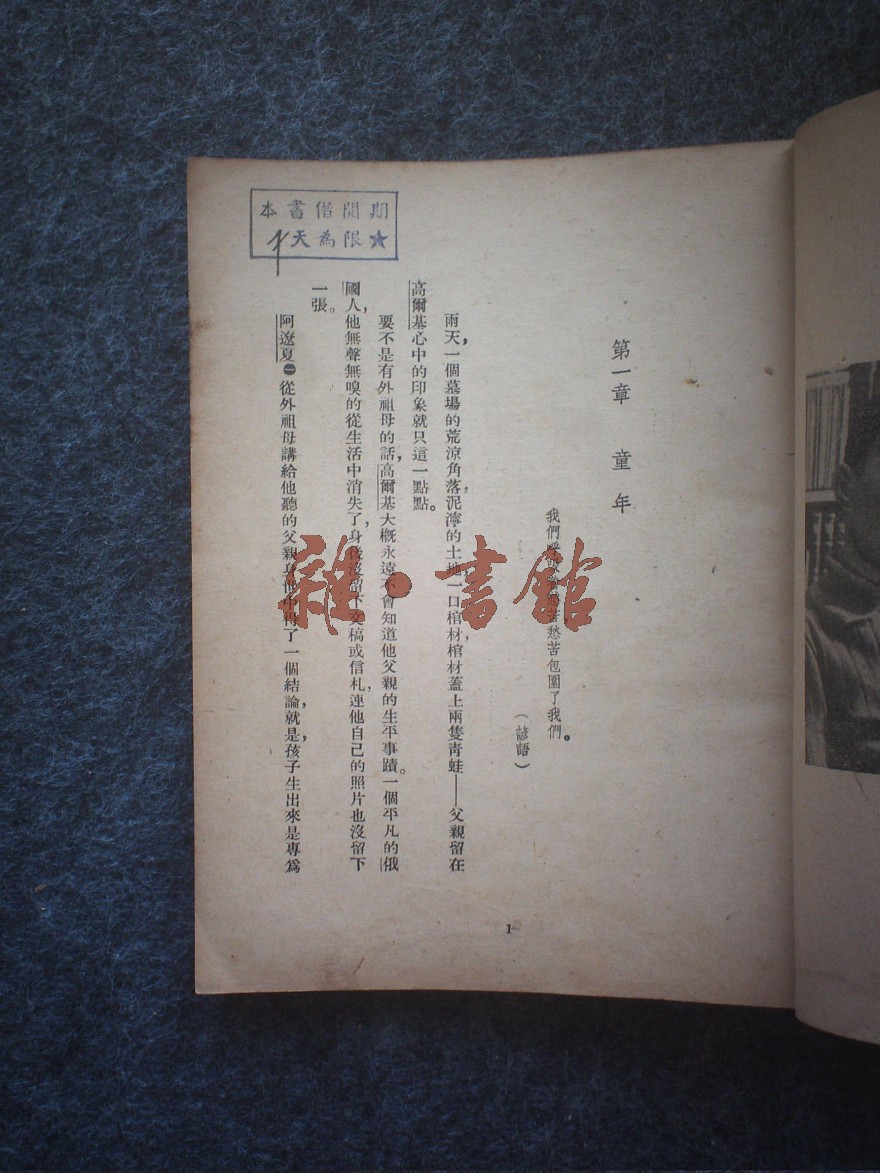 本書借閱期
天為限★
第一章 童年
我們
苦愁苦包圍了我們。
(諺語)
雨天,一個墓場的荒涼角落,泥濘的土地,一口棺材,棺材蓋上兩隻青蛙——父親留在
高爾基心中的印象就只這一點點。
要不是有外祖母的話,高爾基大概永遠不會知道他父親的生平事蹟。一個平凡的俄
國人,他無聲無嗅的從生活中消失了,身後沒留下文稿或信札,連他自己的照片也沒留下
一張。
阿遼夏㊀從外祖母講給他聽的父親身世中得了一個結論,就是,孩子生出來是專爲
1
雜·書館